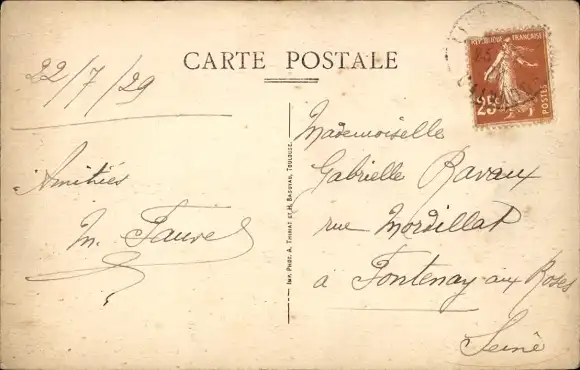 CARTE POSTALE
22/7/29
Amitiés
M. Faure
IMP. PHOT. A. THIRIAT ET H. BASUYAU, TOULOUSE.
RÉPUBLIQUE FRANÇAISE
25c
POSTES
Mademoiselle
Gabrielle Ravaux
rue Mordillat
a Fontenay-aux Roses
Seine